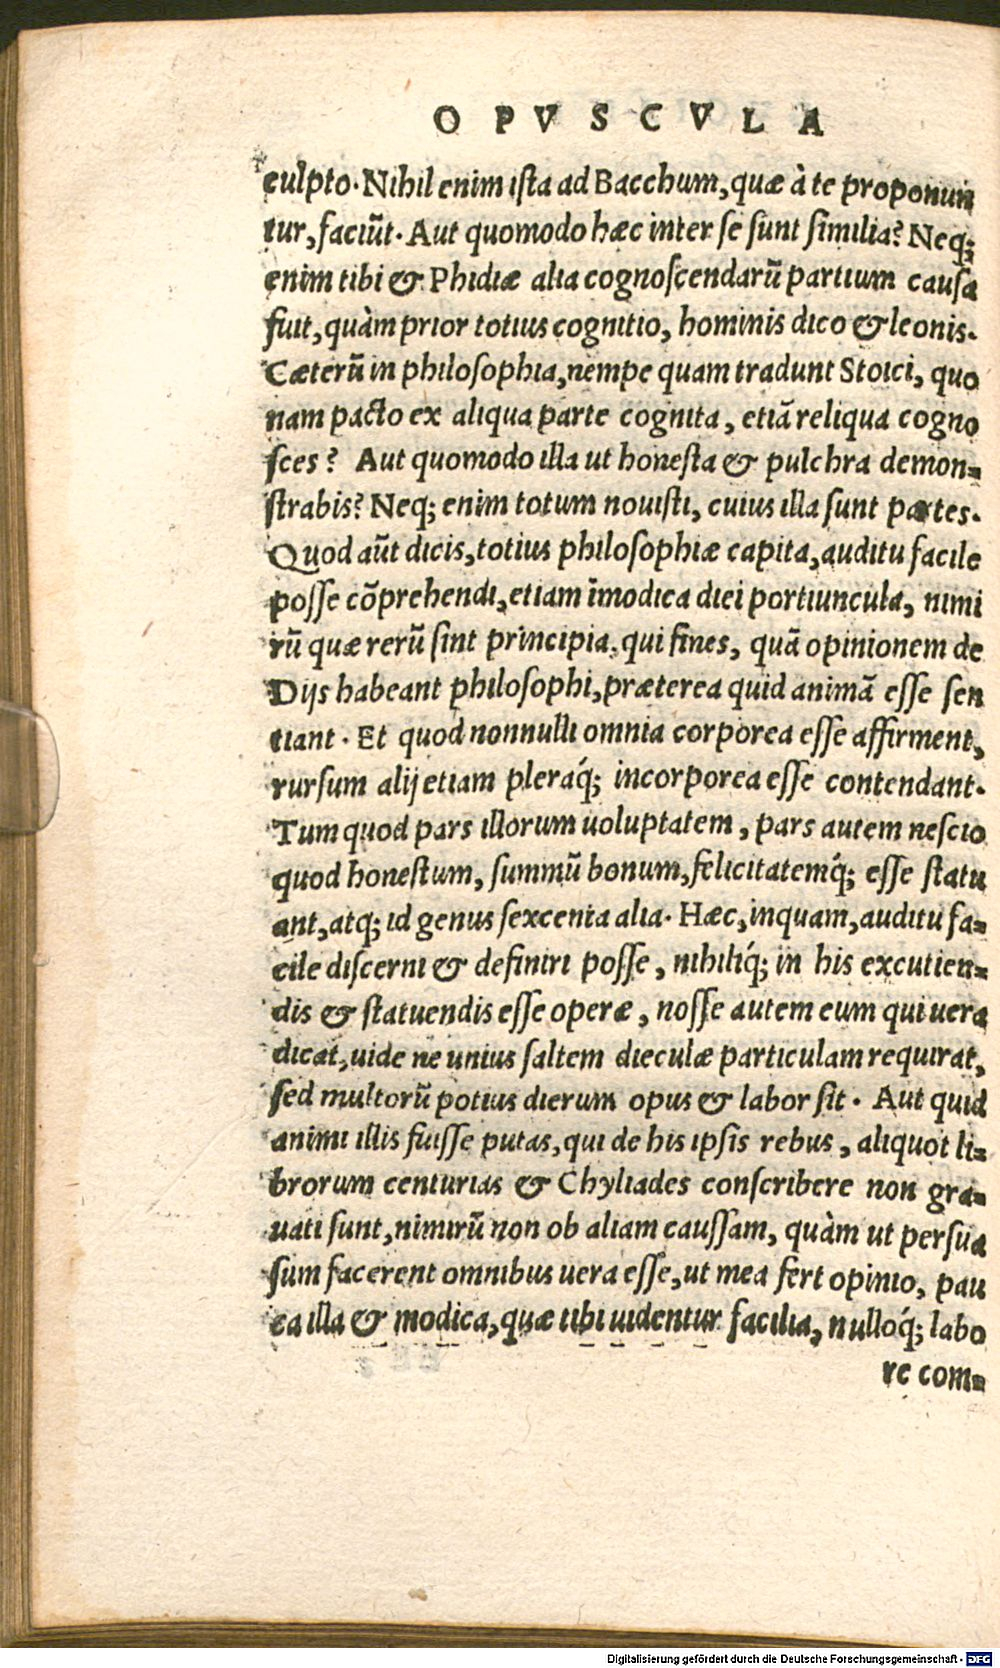 OPVSCVLA
culpto. Nihil enim ista ad Bacchum, quæ à te proponun
tur, faciūt. Aut quomodo hæc inter se sunt similia? Neq;
enim tibi & Phidiæ alia cognoscendarū partium causa
fuit, quàm prior totius cognitio, hominis dico & leonis.
Cæterū in philosophia, nempe quam tradunt Stoici, quo
nam pacto ex aliqua parte cognita, etiā reliqua cogno
sces? Aut quomodo illa ut honesta & pulchra demon=
strabis? Neq; enim totum nouisti, cuius illa sunt partes.
Quod aūt dicis, totius philosophiæ capita, auditu facile
posse cōprehendi, etiam īmodica diei portiuncula, nimi
rū quæ rerū sint principia, qui fines, quā opinionem de
Dijs habeant philosophi, præterea quid animā esse sen
tiant. Et quod nonnulli omnia corporea esse affirment,
rursum alij etiam pleráq; incorporea esse contendant.
Tum quod pars illorum uoluptatem, pars autem nescio
quod honestum, summū bonum, felicitatemq́; esse statu
ant, atq; id genus sexcenta alia. Hæc, inquam, auditu fa=
cile discerni & definiri posse, nihiliq́; in his excutien=
dis & statuendis esse operæ, nosse autem eum qui uera
dicat, uide ne unius saltem dieculæ particulam requirat,
sed multorū potius dierum opus & labor sit. Aut quid
animi illis fuisse putas, qui de his ipsis rebus, aliquot li=
brorum centurias & Chyliades conscribere non gra=
uati sunt, nimirū non ob aliam caussam, quàm ut persua
sum facerent omnibus uera esse, ut mea fert opinio, pau
ca illa & modica, quæ tibi uidentur facilia, nulloq́; labo
re com=
Digitalisierung gefördert durch die Deutsche Forschungsgemeinschaft - DFG